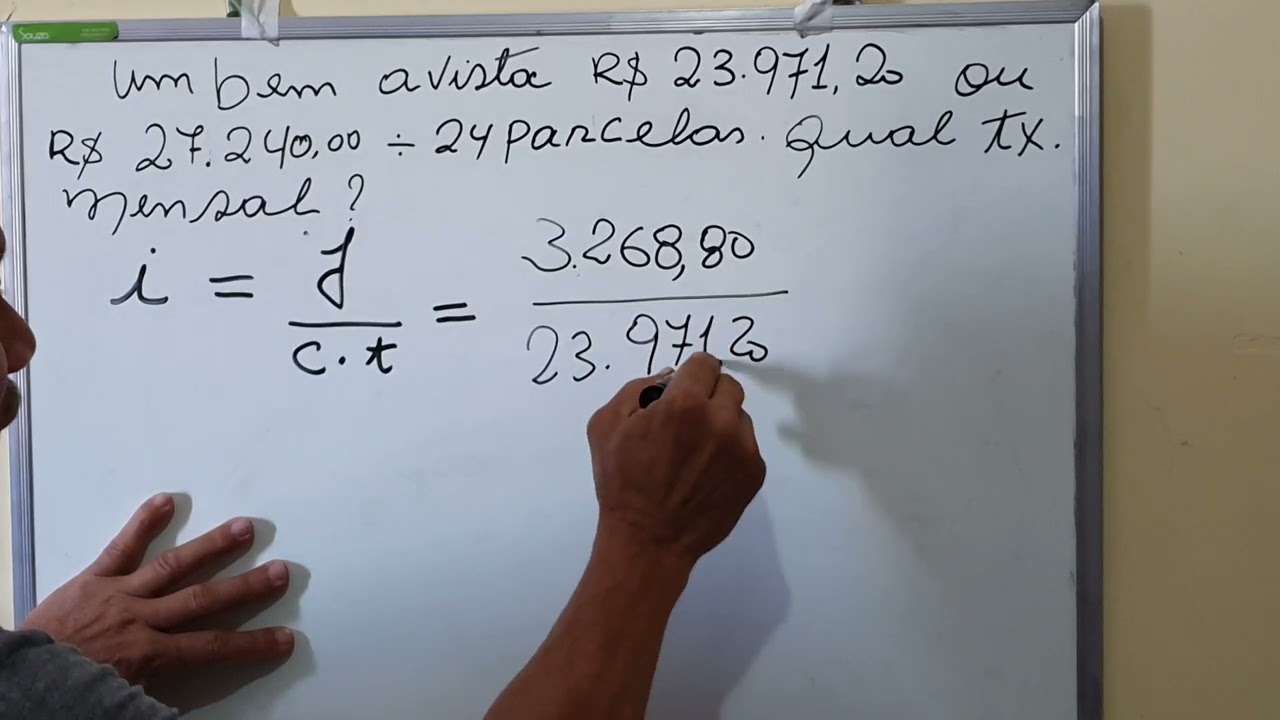 Souza
um bem a vista R$ 23.971,20 ou
R$ 27.240,00 ÷ 24 parcelas. Qual tx.
mensal?
i = J / c.t = 3.268,80 / 23.971,20